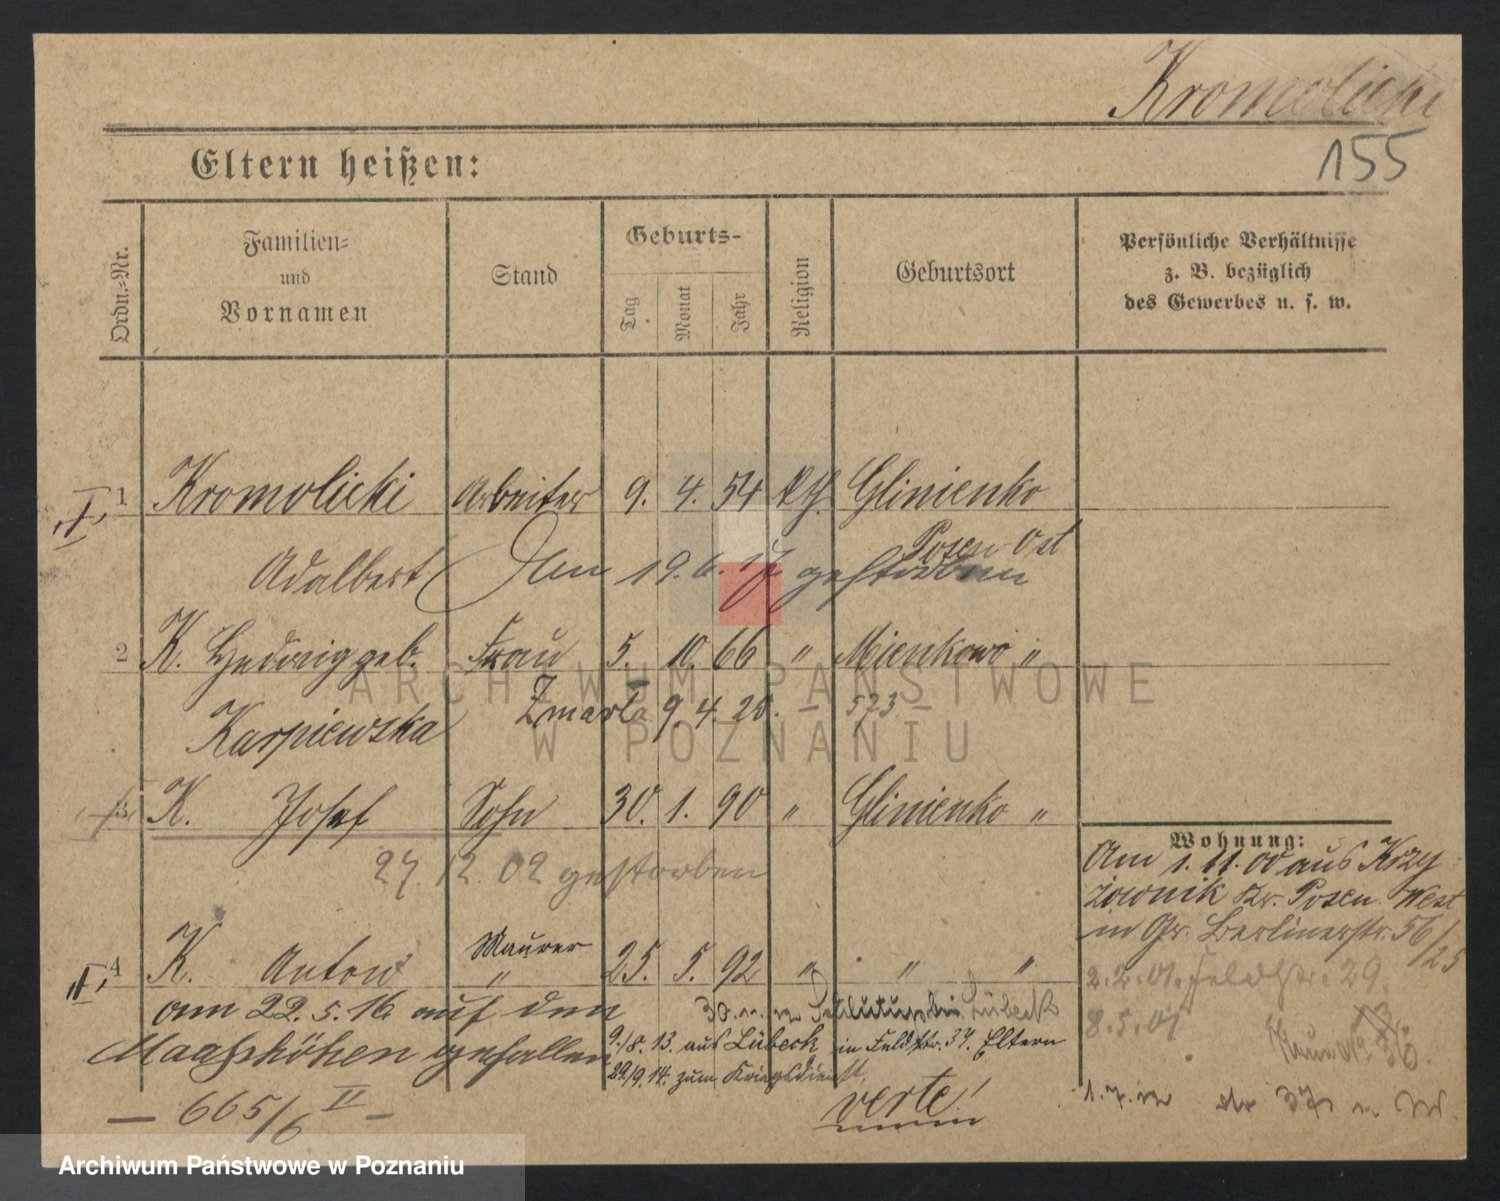 Kromolicki
155
Eltern heißen:
Ordn.-Nr.
Familien-
und
Vornamen
Stand
Geburts-
Tag
Monat
Jahr
Religion
Geburtsort
Persönliche Verhältnisse
z. B. bezüglich
des Gewerbes u. s. w.
"I" 1 Kromolicki Arbeiter 9. 4. 54 kth. Glinienko
Posen Ost
Adalbert Am 19. 6. 17 gestorben
2 K. Hedwig geb. Frau 5. 10. 66 " Mienkowo "
Karpiewska Zmarła 9. 4. 20. 573
3 K. Josef Sohn 30. 1. 90 " Glinienko "
27. 12. 02 gestorben
Maurer
4 K. Anton " 25. 5. 92 " " "
am 22. 5. 16 auf den
Maashöhen gefallen
Lübeck
9./8. 13. aus Lübeck in Feldstr. 37. Eltern
29./9. 14. zum Kriegsdienst.
— 665/6 II —
verte!
Wohnung:
Am 1. 11. 00 aus Krzy-
zownik Kr. Posen West
in Gr. Berlinerstr. 56/25
2. 2. 01. Feldstr. 29.
8. 5. 07
1. 7. 37
ARCHIWUM PAŃSTWOWE
W POZNANIU
Archiwum Państwowe w Poznaniu